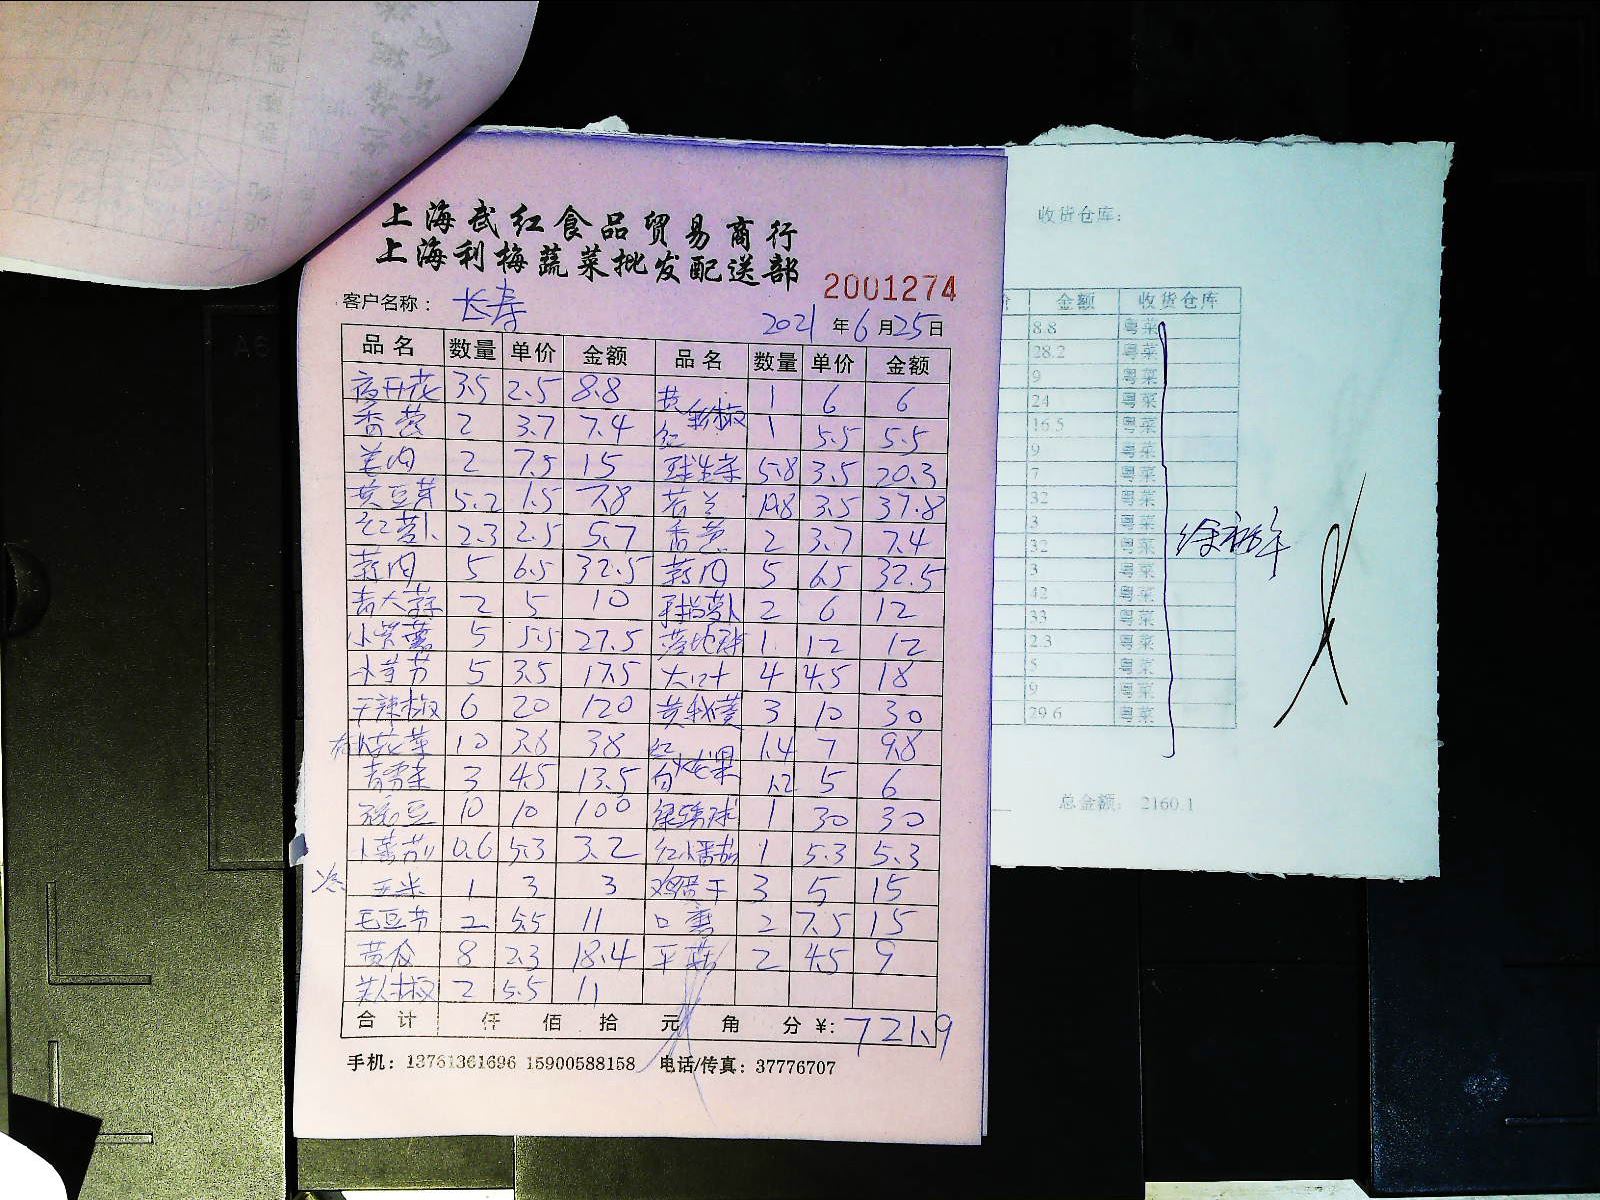 上海武红食品贸易商行
上海利梅蔬菜批发配送部
2001274
客户名称： 长寿
2021 年 6 月 25 日
品名 数量 单价 金额 品名 数量 单价 金额
夜开花 3.5 2.5 8.8 黄 彩椒 1 6 6
香菜 2 3.7 7.4 红 1 5.5 5.5
2 7.5 15 球生菜 5.8 3.5 20.3
黄豆芽 5.2 1.5 7.8 芥兰 10.8 3.5 37.8
红萝卜 2.3 2.5 5.7 2 3.7 7.4
5 6.5 32.5 5 6.5 32.5
青大蒜 2 5 10 手指萝卜 2 6 12
小紫薯 5 5.5 27.5 1 12 12
小芋艿 5 3.5 17.5 4 4.5 18
干辣椒 6 20 120 黄秋葵 3 10 30
花菜 10 3.8 38 红 火龙果 1.4 7 9.8
3 4.5 13.5 白 1.2 5 6
豌豆 10 10 100 绿绣球 1 30 30
0.6 5.3 3.2 红小番茄 1 5.3 5.3
玉米 1 3 3 鸡蛋干 3 5 15
毛豆节 2 5.5 11 口蘑 2 7.5 15
黄瓜 8 2.3 18.4 平菇 2 4.5 9
美人椒 2 5.5 11
合计 仟 佰 拾 元 角 分 ￥: 721.9
手机：13761361696 15900588158 电话/传真：37776707
收货仓库：
金额 收货仓库
8.8 粤菜
28.2 粤菜
9 粤菜
24 粤菜
16.5 粤菜
9 粤菜
7 粤菜
32 粤菜
3 粤菜
32 粤菜
3 粤菜
42 粤菜
33 粤菜
2.3 粤菜
5 粤菜
9 粤菜
29.6 粤菜
总金额： 2160.1